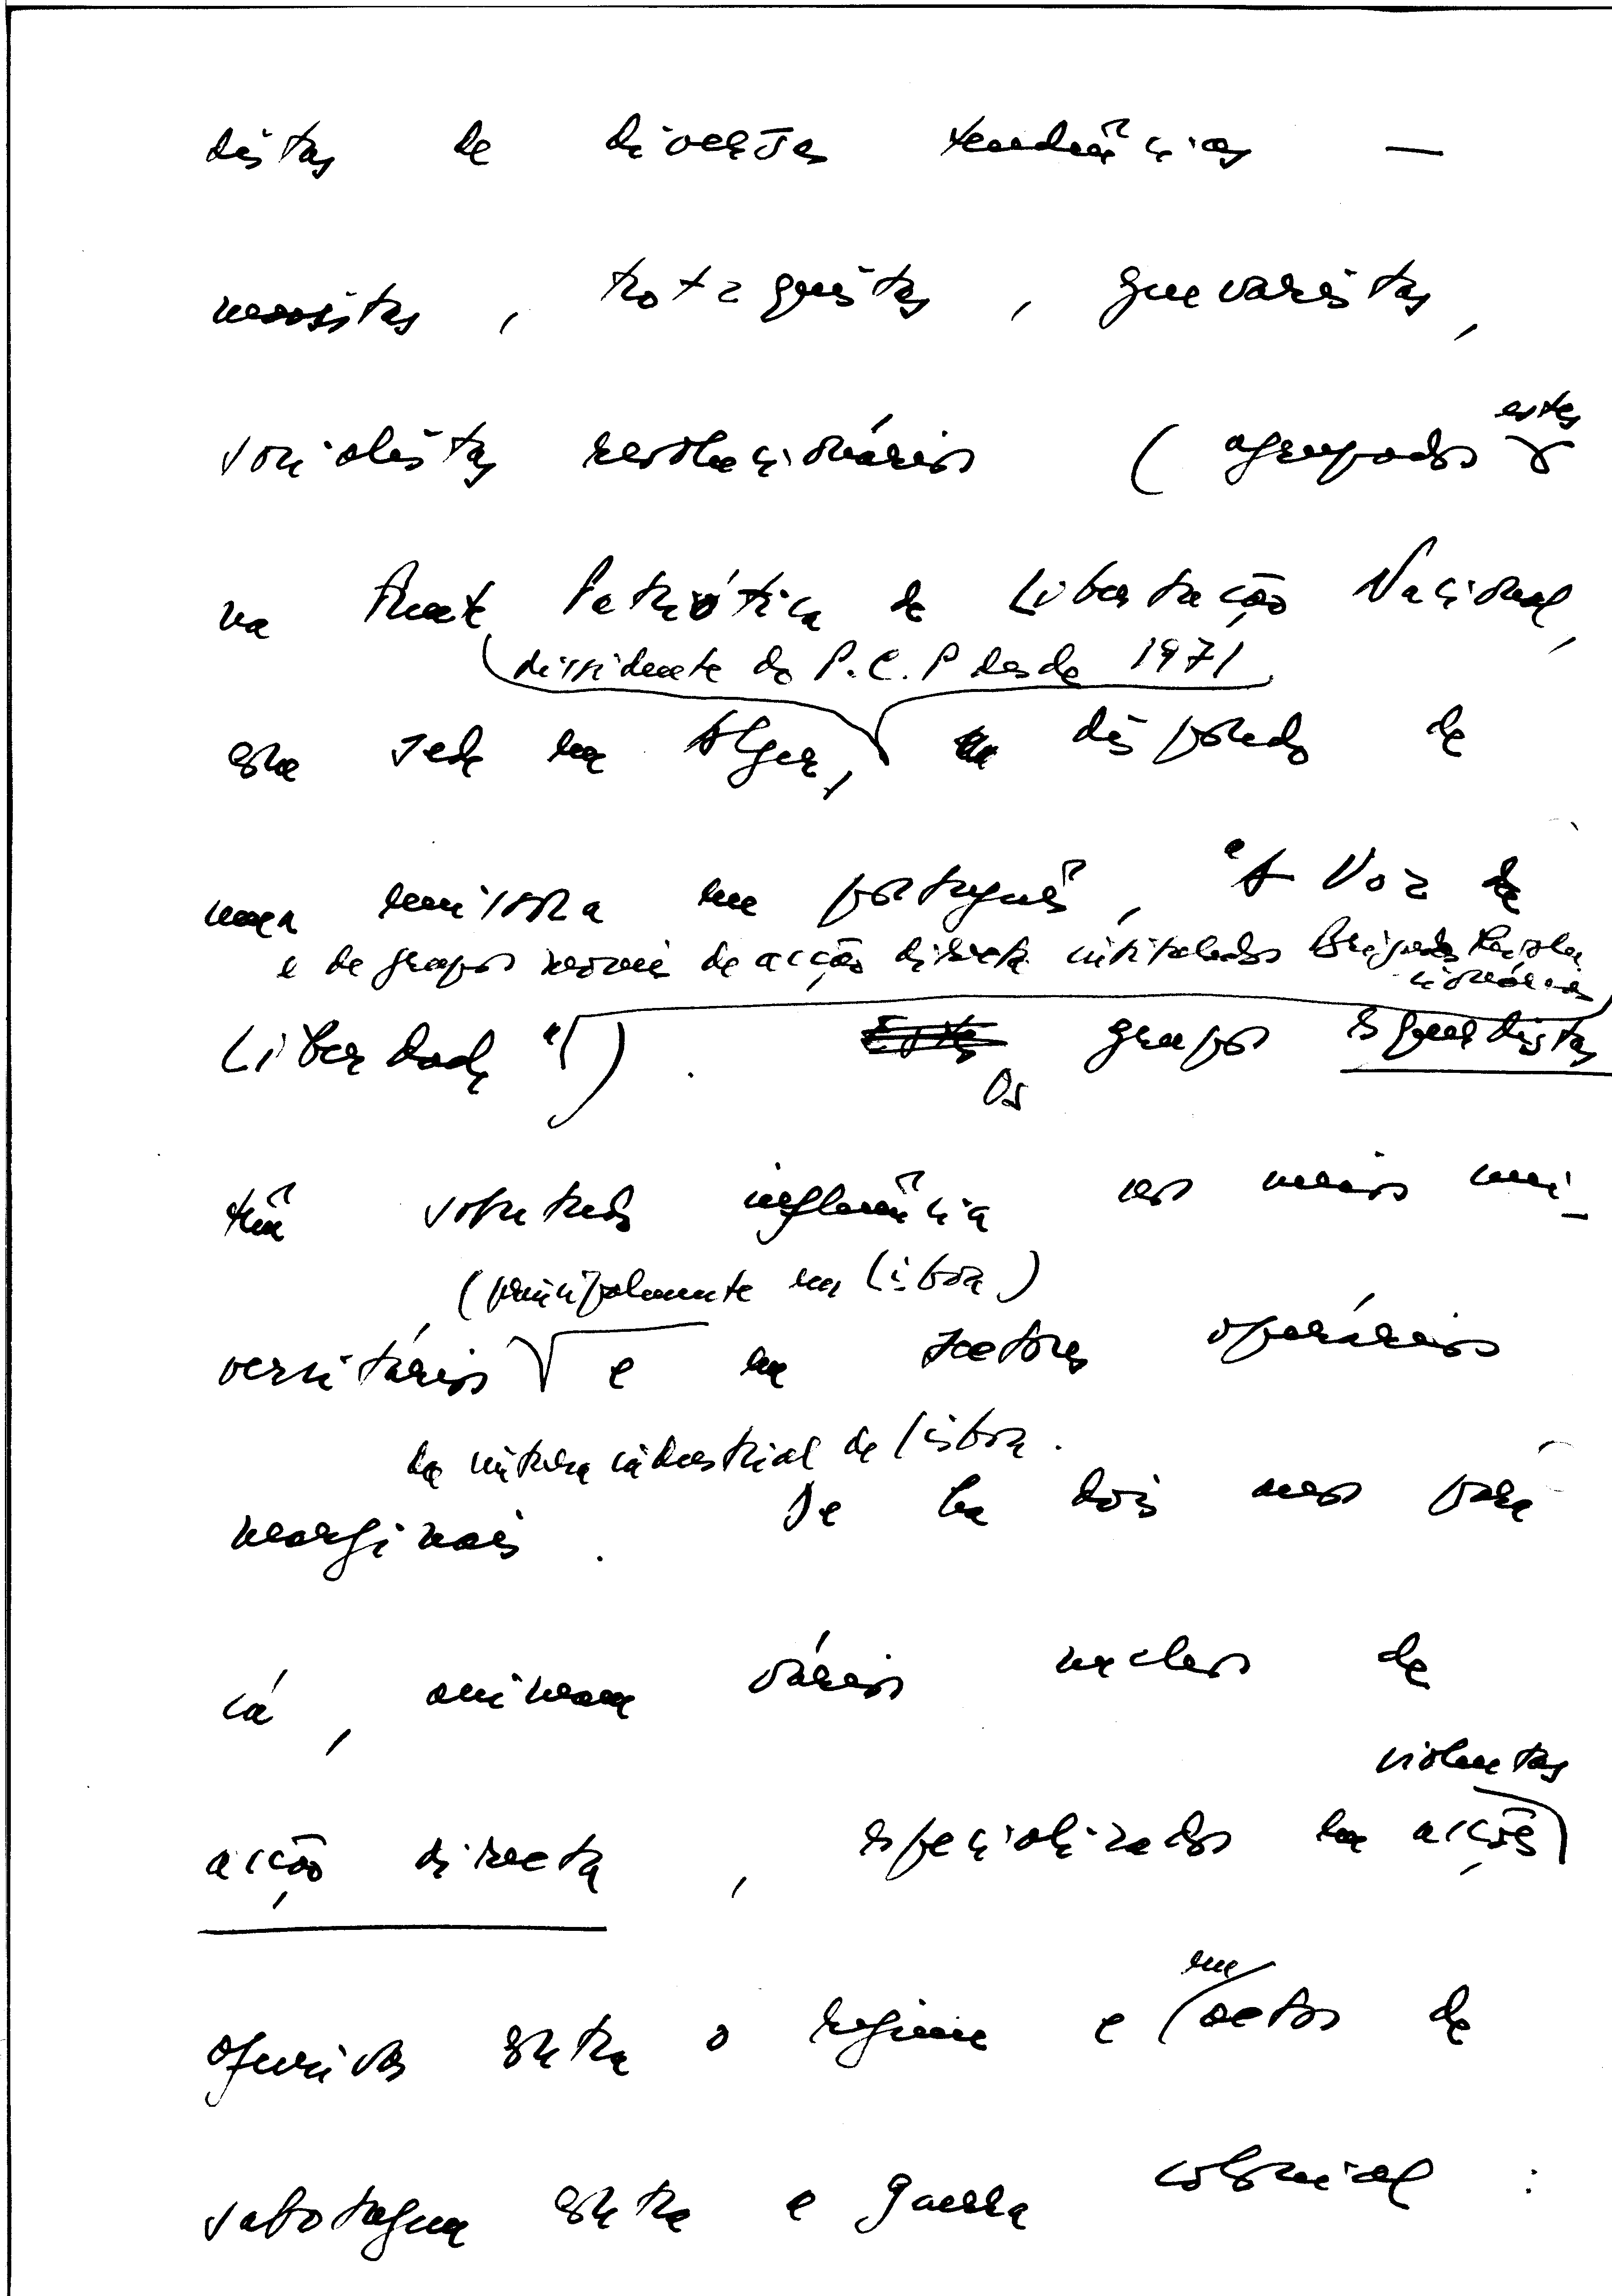 distas de diversas tendências —
maoistas, trotzquistas, guevaristas,
estes
socialistas revolucionários (agrupados
na Frente Patriótica de Libertação Nacional,
dissidente do P.C.P desde 1971
com sede em Alger, dispondo de
uma emissora em português, "A Voz da
e de grupos móveis de acção directa intitulados Brigadas Revolu
cionárias
Liberdade"). Estes grupos esquerdistas
Os
têm sobretudo influência nos meios uni-
(principalmente em Lisboa)
versitários e em sectores operários
da cintura industrial de Lisboa.
marginais. De há dois anos para
cá, animam vários nucleos de
violentas
acção directa, especializados em acções
em
ofensivas contra o regime e actos de
sabotagem contra a guerra colonial: